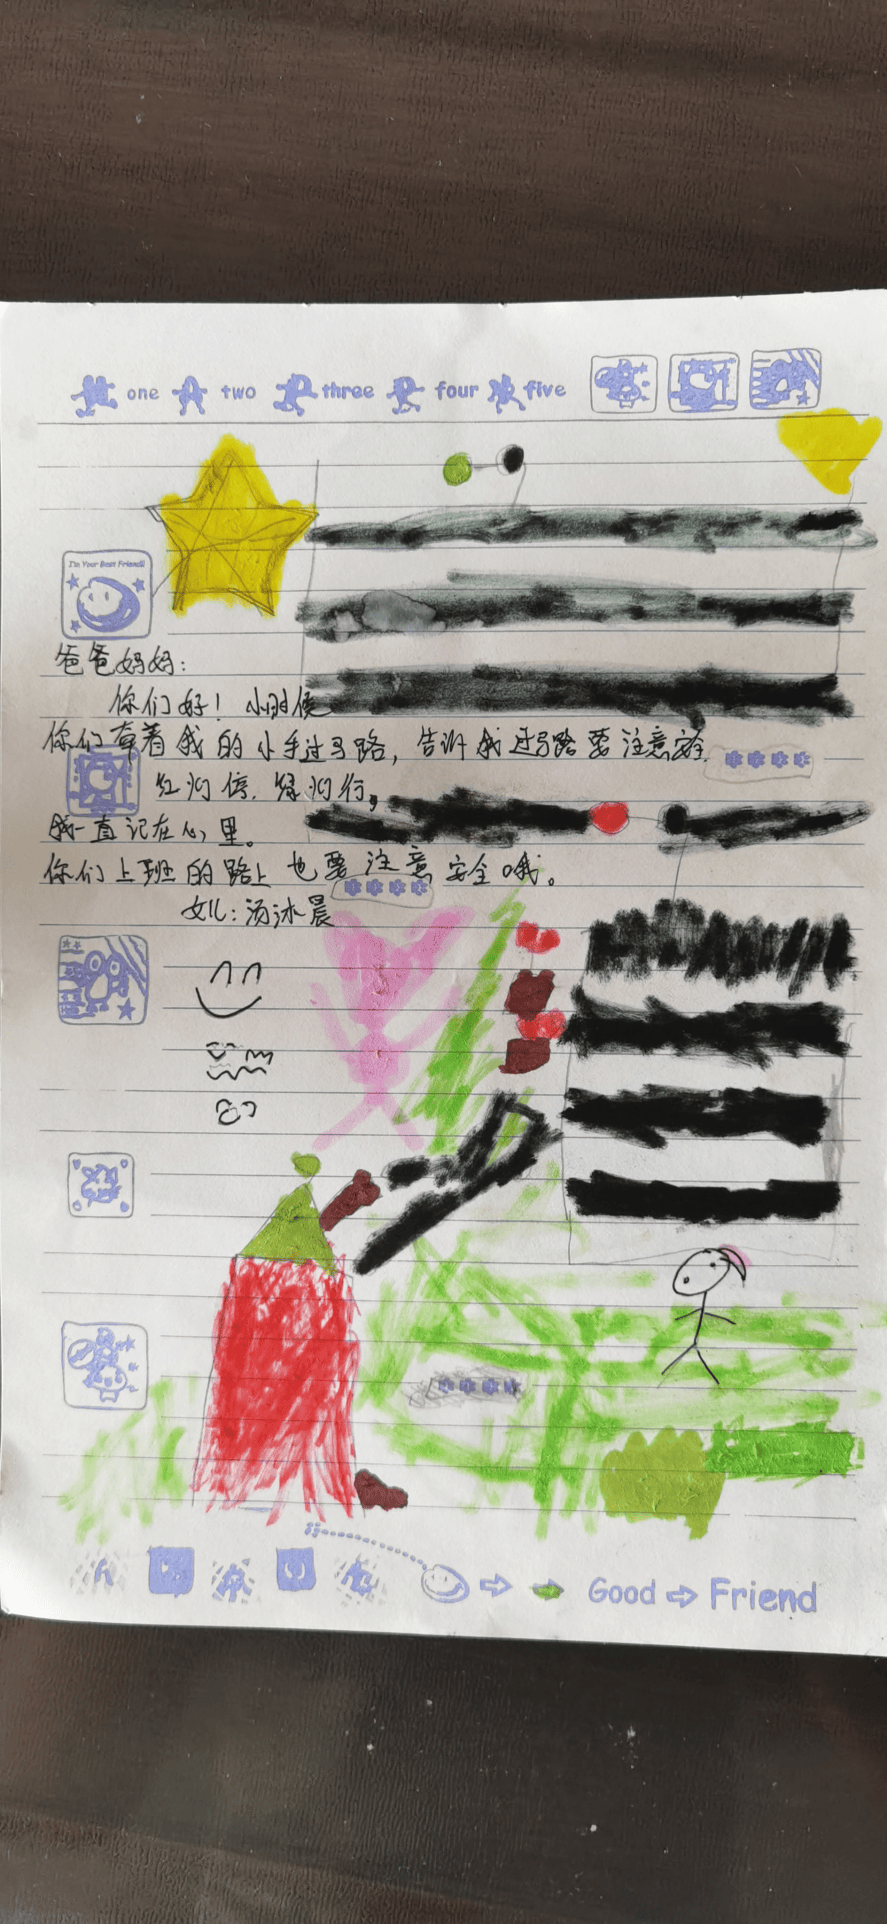 one two three four five
I'm Your Best Friend!
爸爸妈妈:
你们好! 小时候
你们牵着我的小手过马路, 告诉我过马路要注意安全.
红灯停. 绿灯行,
我一直记在心里。
你们上班的路上也要注意安全哦。
女儿:汤冰晨
Good Friend